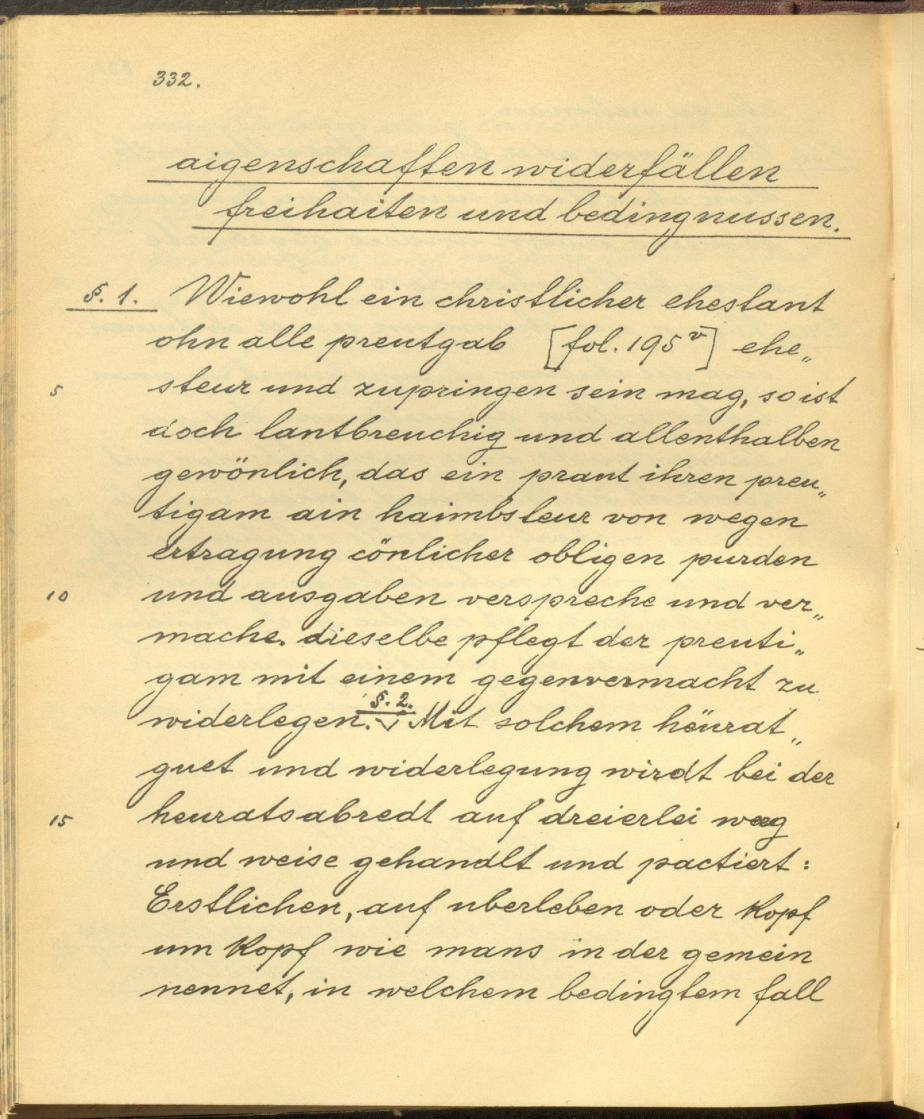 332.
aigenschaften widerfällen
freihaiten und bedingnussen.
§. 1. Wiewohl ein christlicher ehestant
ohn alle preutgab [fol. 195v] ehe„
5 steur und zupringen sein mag, so ist
doch lantbreuchig und allenthalben
gewönlich, das ein praut ihren preu„
tigam ain haimbsteur von wegen
ertragung cönlicher obligen purden
10 und ausgaben verspreche und ver„
mache. dieselbe pflegt der preuti„
gam mit einem gegenvermacht zu
widerlegen. §. 2. Mit solchem heürat„
guet und widerlegung wirdt bei der
15 heuratsabredt auf dreierlei weg
und weise gehandlt und pactiert:
Erstlichen, auf uberleben oder Kopf
um Kopf wie mans in der gemein
nennet, in welchem bedingtem fall